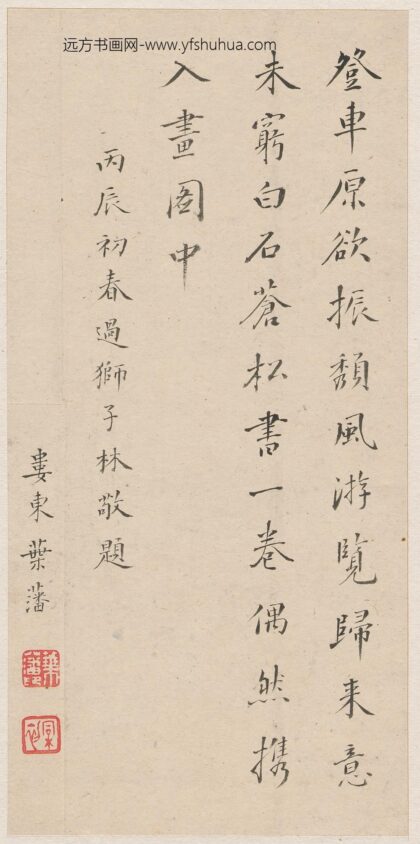 远方书画网-www.yfshuhua.com
登車原欲振頽風游覽歸来意
未窮白石蒼松書一卷偶然携
入畫图中
丙辰初春過獅子林敬題
婁東葉藩